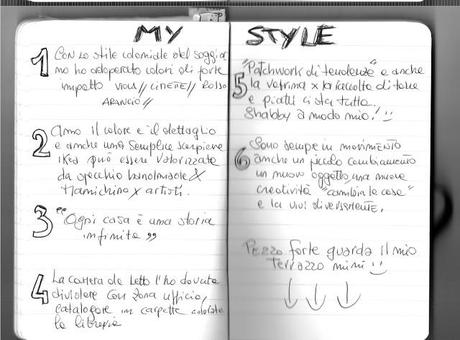 MY STYLE
1 Con lo stile coloniale del soggior
no ho adoperato colori di forte
impatto VIOLA // CENERE // ROSSO
ARANCIO //
2 Amo il colore e il dettaglio
e anche una semplice scarpiera
Ikea può essere valorizzata
da specchio X
X artisti.
3 "Ogni casa è una storia
infinita"
4 La camera da letto l'ho dovuta
dividere con zona ufficio,
catalogare in carpette colorate
la libreria
5 "Patchwork di tendenze" e anche
la vetrina x la raccolta di tazze
e piatti ci sta tutta.
Shabby a modo mio!
6 Sono sempre in movimento
anche un piccolo cambiamento
un nuovo oggetto, una nuova
creatività "cambia le case"
e la vivi diversamente.
Pezzo forte guarda il mio
Terrazzo mini